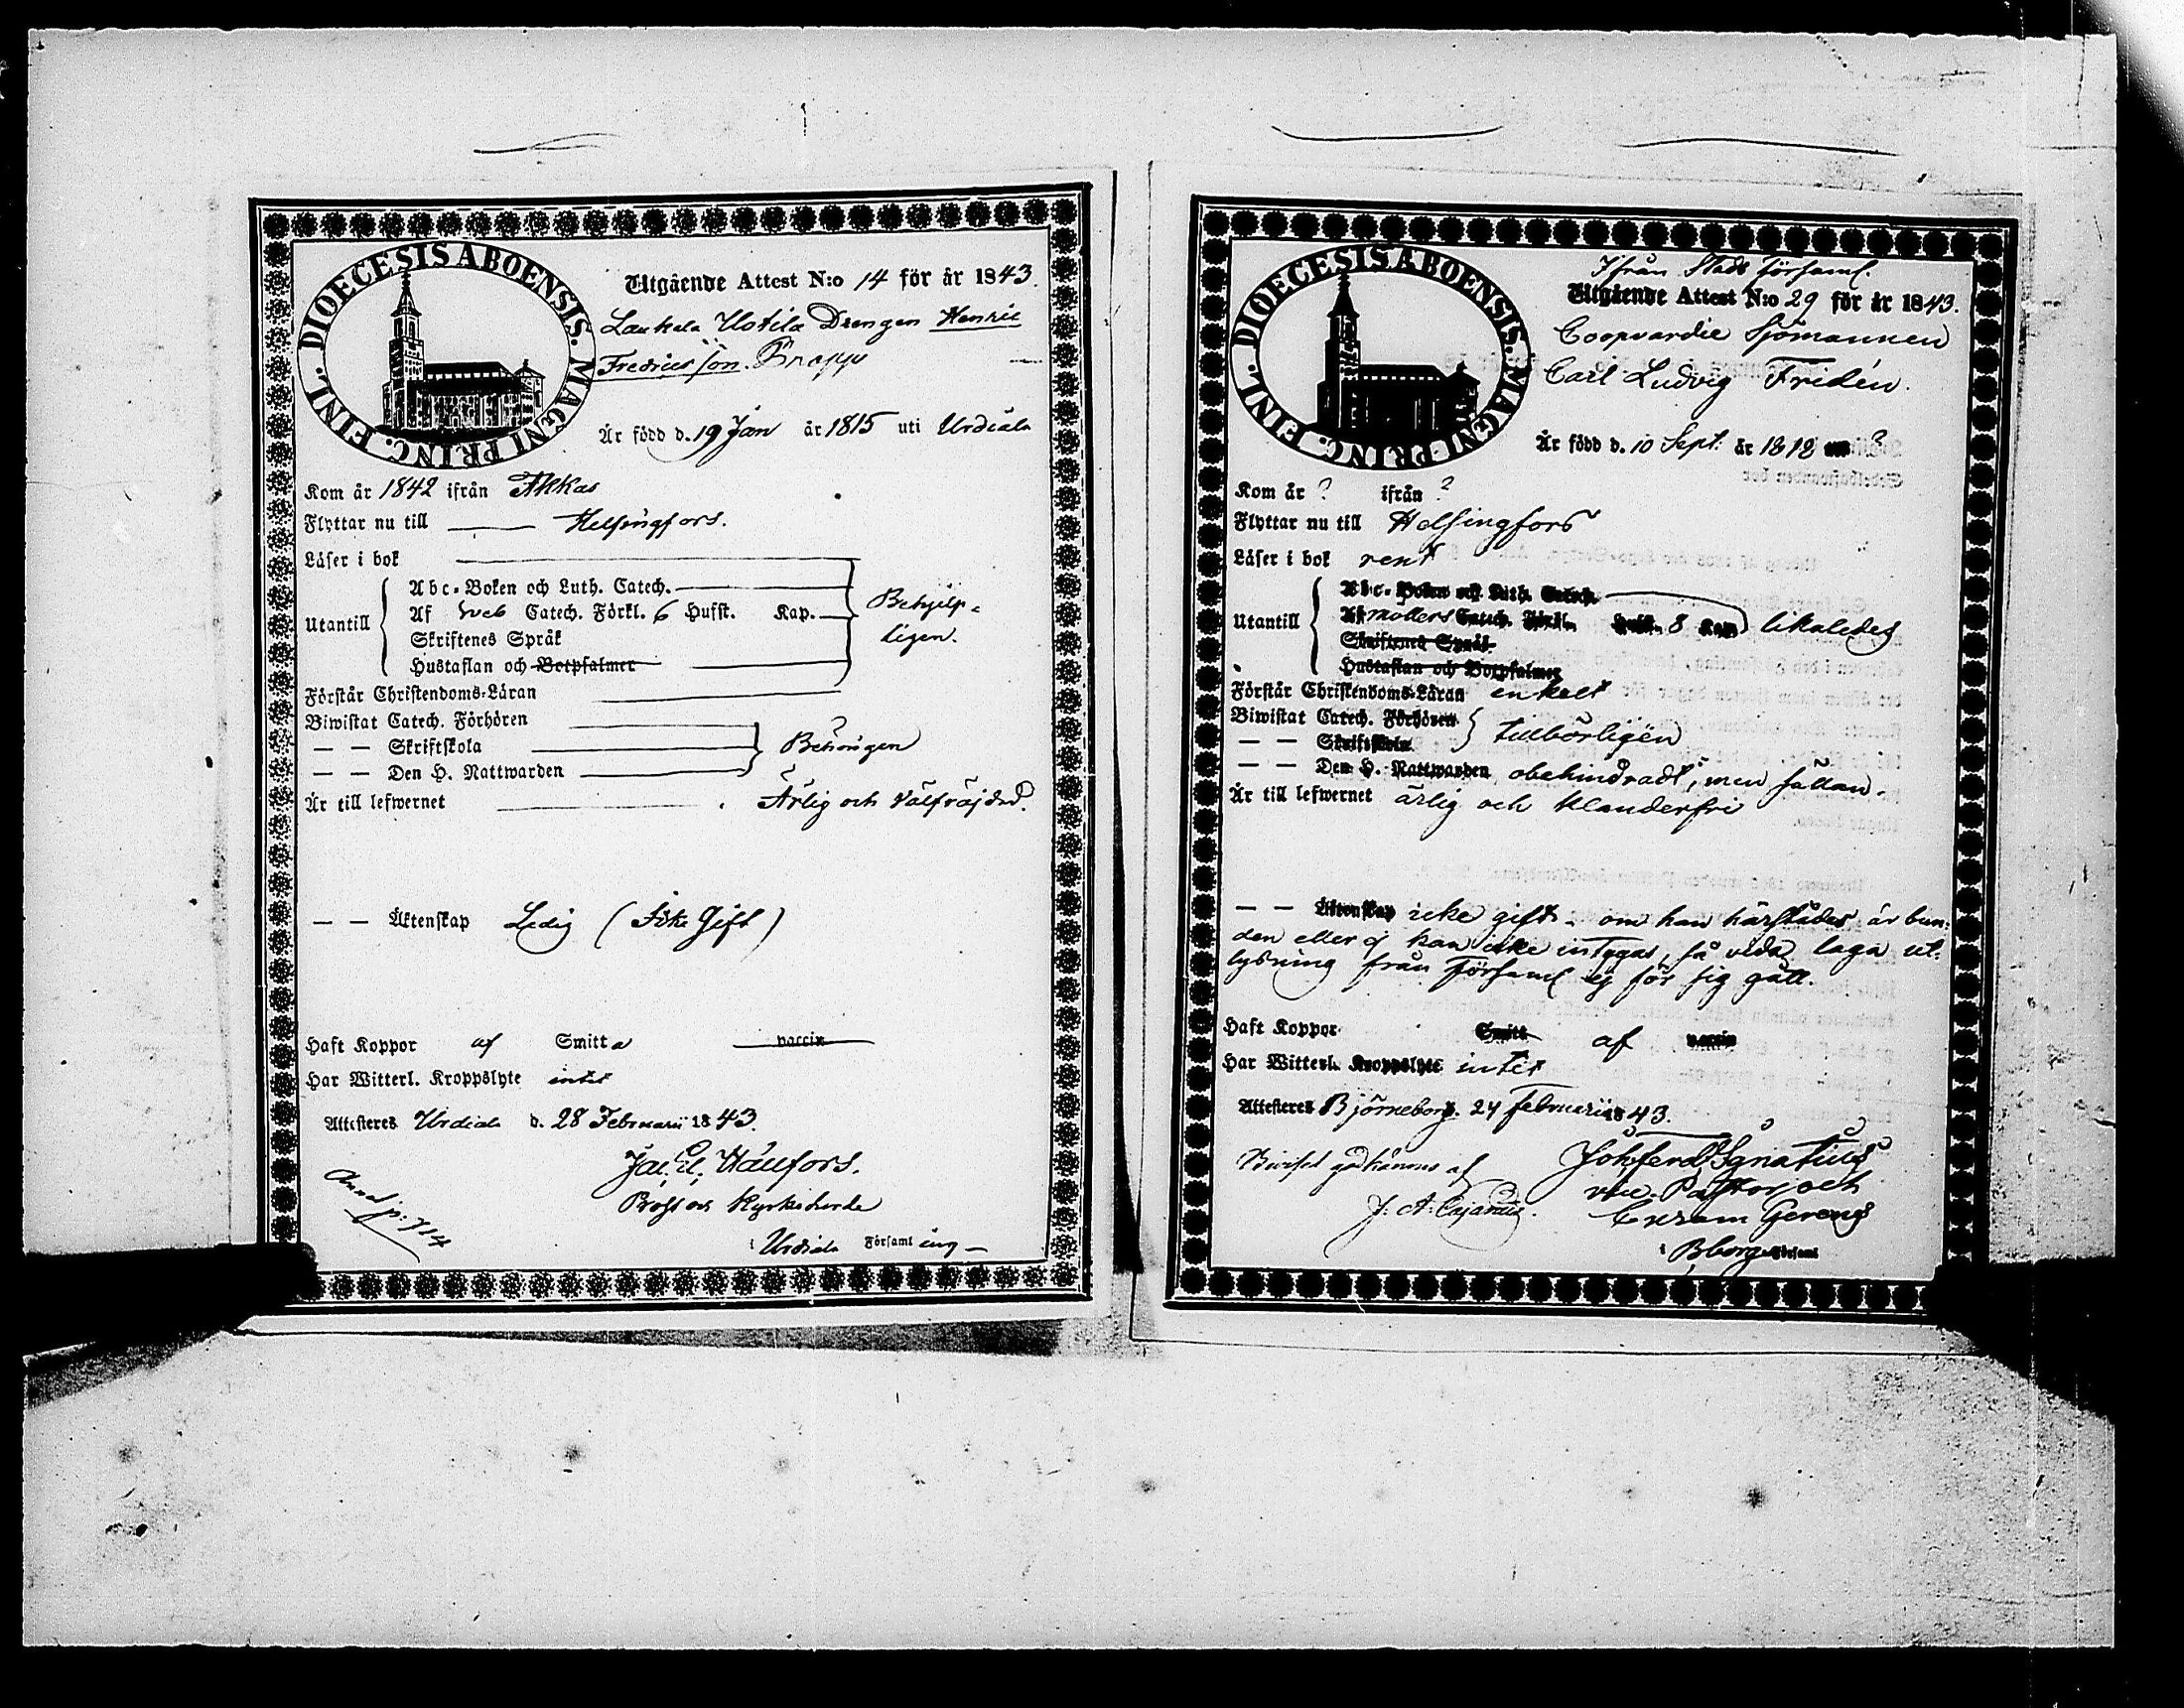 DIOECESIS ABOENSIS. MAGNI PRINC. FINL.
Utgående Attest N:o 14 för år 1843.
Laukela Uotila Drengen Henric
Fredricsson. Knapp
Är född d. 19 Jan år 1815 uti Urdiala
Kom år 1842 ifrån Akkas
Flyttar nu till Helsingfors.
Läser i bok
Utantill
Abc-Boken och Luth. Catech.
Af Sveb Catech. Förkl. 6 Hufst. Kap.
Skriftenes Språk
Hustaflan och Botpsalmer
Behjelp-
ligen.
Förstår Christendoms-Läran
Biwistat Catech. Förhören
— — Skriftskola
— — Den H. Nattwarden
Behörigen
Är till lefwernet Ärlig och Välfräjdad.
— — Äktenskap Ledig (Icke Gift)
Haft Koppor af Smitta vaccin
Har Witterl. Kroppslyte intet
Attesteres Urdiala d. 28 Februarii 1843.
Wallfors.
Prost och Kyrkoherde
i Urdiala Församling
p: 714
DIOECESIS ABOENSIS. MAGNI PRINC. FINL.
Ifrån Stads församl.
Utgående Attest N:o 29 för år 1843.
Coopvardie Sjömannen
Carl Ludvig Fridén.
Är född d. 10 Sept. år 1818 uti ?
Kom år ? ifrån ?
Flyttar nu till Helsingfors
Läser i bok rent
Utantill
Abc-Boken och Luth. Catech.
Af Möllers Catech. Förkl. Hufst. 8 Kap. likaledes
Skriftenes Språk
Hustaflan och Botpsalmer
Förstår Christendoms-Läran enkelt
Biwistat Catech. Förhören
— — Skriftskola
tillbörligen
— — Den H. Nattwarden obehindradt, men sällan.
Är till lefwernet ärlig och klanderfri
— — Äktenskap icke gift - om han härstädes är bun-
den eller ej kan icke intygas, så vida laga ut-
lysning från Församl ej för sig gått.
Haft Koppor Smitt af vaccin
Har Witterl. Kroppslyte intet
Attesteres Björneborg. 24 Februarii 1843.
Ignatius
vice Pastor och
J. A. Cajander.
i Bborgs Församl